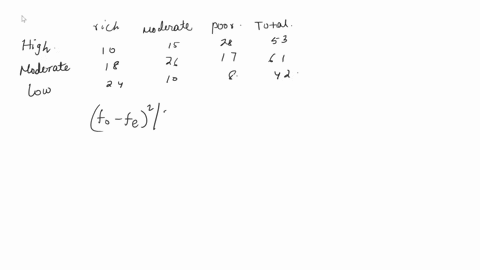 rich Moderate Poor. Total.
High. 10 15 28 53
Moderate 18 26 17 61
Low 24 10 8. 42.
(fo-fe)²/